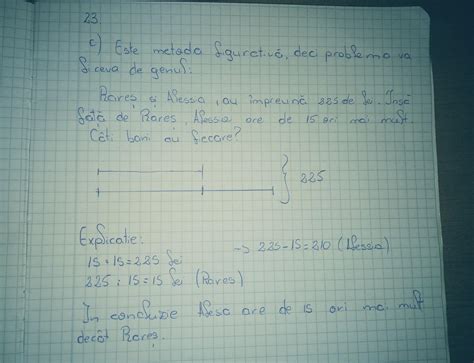 23.
c) Este metoda figurativă, deci problema va
fi ceva de genul:
Rareș și Alessia, au împreună 225 de lei. Însă
față de Rareș, Alessia are de 15 ori mai mult.
Câți bani au fiecare?
225
Explicatie:
15 · 15 = 225 lei
-> 225-15=210 (Alessia)
225 : 15 = 15 lei (Rares)
În concluzie Alesia are de 15 ori mai mult
decât Rareș.